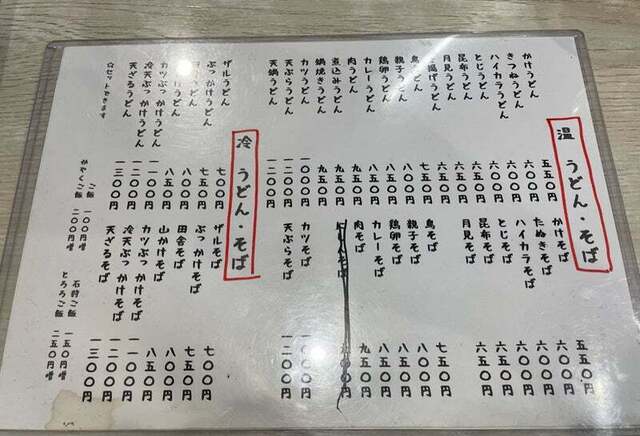 温 うどん・そば
かけうどん 五五〇円
きつねうどん 六〇〇円
ハイカラうどん 六〇〇円
とじうどん 六五〇円
昆布うどん 六五〇円
月見うどん 六五〇円
揚げうどん 六五〇円
鳥うどん 七五〇円
親子うどん 八〇〇円
鶏卵うどん 八〇〇円
カレーうどん 八五〇円
肉うどん 九五〇円
煮込みうどん 九五〇円
鍋焼きうどん 九五〇円
カツうどん 一〇〇〇円
天ぷらうどん 一二〇〇円
天鍋うどん
かけそば 五五〇円
たぬきそば 六〇〇円
ハイカラそば 六〇〇円
とじそば 六五〇円
昆布そば 六五〇円
月見そば 六五〇円
鳥そば 七五〇円
親子そば 八〇〇円
鶏卵そば 八〇〇円
カレーそば 八五〇円
肉そば 九五〇円
カツそば 一〇〇〇円
天ぷらそば 一二〇〇円
冷 うどん・そば
ザルうどん 七〇〇円
ぶっかけうどん 七五〇円
うどん 八〇〇円
けうどん 八五〇円
カツぶっかけうどん 一一〇〇円
冷天ぶっかけうどん
天ざるうどん 一三〇〇円
☆セットできます
ザルそば 七〇〇円
ぶっかけそば 七五〇円
田舎そば 八〇〇円
山かけそば 八五〇円
カツぶっかけそば 一一〇〇円
冷天ぶっかけそば
天ざるそば 一三〇〇円
ご飯 一〇〇円増
かやくご飯 二〇〇円増
石狩ご飯 一五〇円増
とろろご飯 二五〇円増